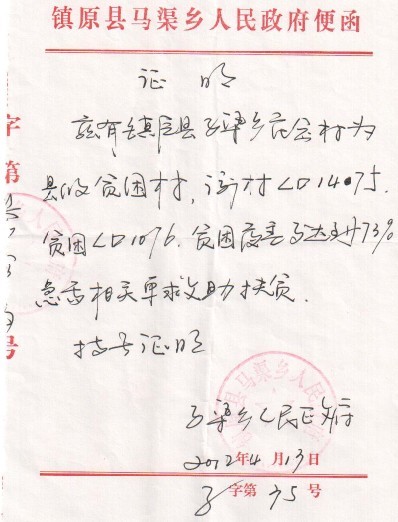 镇原县马渠乡人民政府便函
证 明
兹有镇原县马渠乡花岔村为
县级贫困村，该村人口1475.
贫困人口1076.贫困覆盖面达到73%
急需相关单位救助扶贫.
特予证明
马渠乡人民政府
2012年4月13日
马字第 75 号
字第
号
镇原县马渠乡人民政府